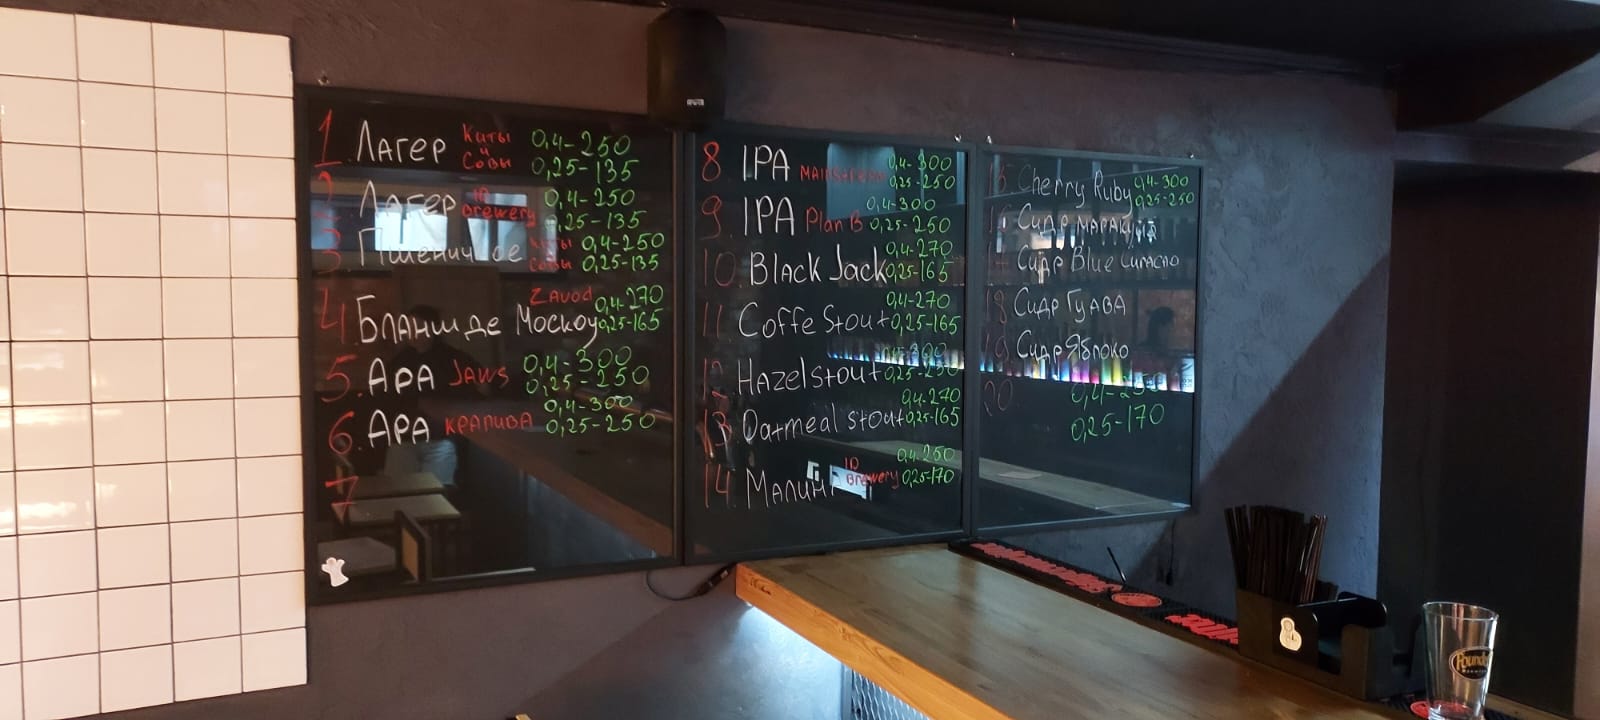 1 Лагер Киты и Совы 0,4-250
0,25-135
2 Лагер ID Brewery 0,4-250
0,25-135
3 Пшеничное Киты Совы 0,4-250
0,25-135
4 Бланш де Москоу Zavod 0,4-270
0,25-165
5 APA Jaws 0,4-300
0,25-250
6 APA Крапива 0,4-300
0,25-250
7
8 IPA 0,4-300
0,25-250
9 IPA Plan B 0,4-300
0,25-250
10 Black Jack 0,4-270
0,25-165
11 Coffe Stout 0,4-270
0,25-165
12 Hazelstout 0,4-300
0,25-250
13 Oatmeal stout 0,4-270
0,25-165
14 ID Brewery 0,4-250
0,25-170
15 Cherry Ruby 0,4-300
0,25-250
16 Сидр маракуйя
17 Сидр Blue Curacao
18 Сидр Гуава
19 Сидр Яблоко
20 0,4-250
0,25-170